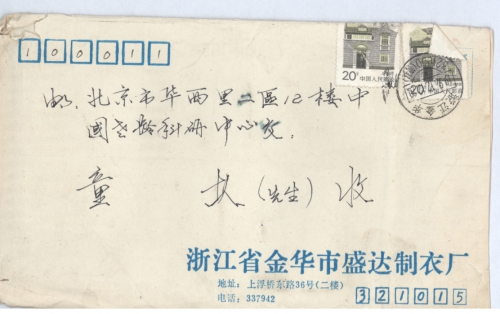 100011
20分 中国人民邮政
北京市华西里二區12楼中
國老龄科研中心交
童 (先生) 收
浙江省金华市盛达制衣厂
地址：上浮桥东路36号(二楼)
电话：337942
321015